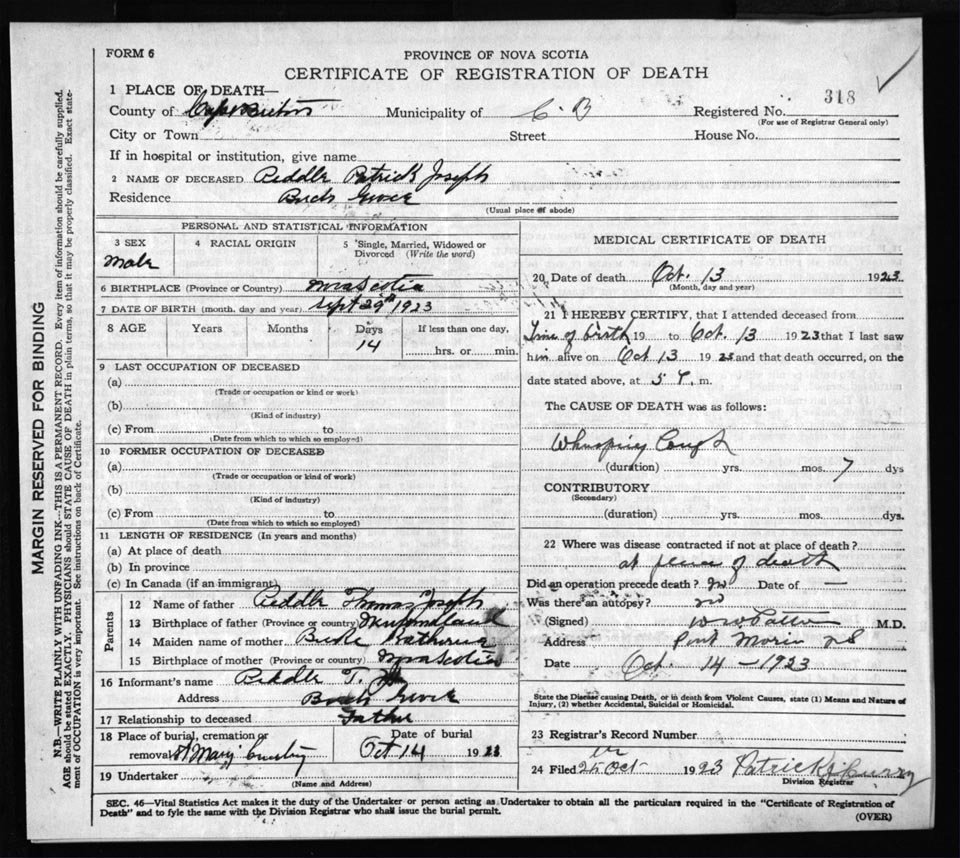 FORM 6
PROVINCE OF NOVA SCOTIA
CERTIFICATE OF REGISTRATION OF DEATH
318
1 PLACE OF DEATH—
County of Cape Breton Municipality of C B Registered No.
(For use of Registrar General only)
City or Town Street House No.
If in hospital or institution, give name
2 NAME OF DECEASED Peddle Patrick Joseph
Residence Birch Grove
(Usual place of abode)
PERSONAL AND STATISTICAL INFORMATION
3 SEX
Male
4 RACIAL ORIGIN
5 Single, Married, Widowed or
Divorced (Write the word)
6 BIRTHPLACE (Province or Country) Nova Scotia
7 DATE OF BIRTH (month, day and year) Sept 29th 1923
8 AGE Years Months Days If less than one day,
14 hrs. or min.
9 LAST OCCUPATION OF DECEASED
(a)
(Trade or occupation or kind or work)
(b)
(Kind of industry)
(c) From to
(Date from which to which so employed)
10 FORMER OCCUPATION OF DECEASED
(a)
(Trade or occupation or kind of work)
(b)
(Kind of industry)
(c) From to
(Date from which to which so employed)
11 LENGTH OF RESIDENCE (In years and months)
(a) At place of death
(b) In province
(c) In Canada (if an immigrant)
Parents
12 Name of father Peddle Thomas Joseph
13 Birthplace of father (Province or country) Newfoundland
14 Maiden name of mother Katherine
15 Birthplace of mother (Province or country) Nova Scotia
16 Informant's name Peddle T.
Address Birch Grove
17 Relationship to deceased Father
18 Place of burial, cremation or Date of burial
removal St Mary Oct 14 1923
19 Undertaker
(Name and Address)
MEDICAL CERTIFICATE OF DEATH
20 Date of death Oct. 13 1923
(Month, day and year)
21 I HEREBY CERTIFY, that I attended deceased from
Time of birth 19 to Oct. 13 1923 that I last saw
him alive on Oct 13 1923 and that death occurred, on the
date stated above, at 5 P. m.
The CAUSE OF DEATH was as follows:
Whooping Cough
(duration) yrs. mos. 7 dys
CONTRIBUTORY
(Secondary)
(duration) yrs. mos. dys.
22 Where was disease contracted if not at place of death?
at place of death
Did an operation precede death? no Date of —
Was there an autopsy? no
(Signed) M.D.
Address Port Morien NS
Date Oct. 14 — 1923
State the Disease causing Death, or in death from Violent Causes, state (1) Means and Nature of
Injury, (2) whether Accidental, Suicidal or Homicidal.
23 Registrar's Record Number
24 Filed 25 Oct 1923 Patrick J Curry
Division Registrar
SEC. 46—Vital Statistics Act makes it the duty of the Undertaker or person acting as Undertaker to obtain all the particulars required in the "Certificate of Registration of
Death" and to fyle the same with the Division Registrar who shall issue the burial permit.
(OVER)
MARGIN RESERVED FOR BINDING
N.B.—WRITE PLAINLY WITH UNFADING INK—THIS IS A PERMANENT RECORD. Every item of information should be carefully supplied.
AGE should be stated EXACTLY. PHYSICIANS should STATE CAUSE OF DEATH in plain terms, so that it may be properly classified. Exact state-
ment of OCCUPATION is very important. See instructions on back of Certificate.